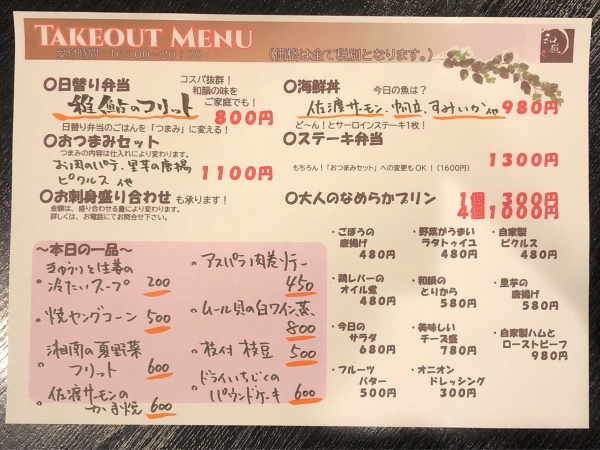 TAKEOUT MENU
受付時間 16:00〜20:00
(価格は全て税別となります。)
和韻
〇日替り弁当
コスパ抜群！
和韻の味を
ご家庭でも！
稚鮎のフリット
800円
日替り弁当のごはんを「つまみ」に変える！
〇おつまみセット
つまみの内容は仕入れにより変わります。
お肉のパテ、里芋の唐揚
ピクルス 他
1100円
〇お刺身盛り合わせ も承ります！
金額は、盛り合わせる量により変わります。
詳しくは、お電話にてお問合せ下さい。
〇海鮮丼
今日の魚は？
佐渡サーモン、帆立、すみいか 他
980円
ど〜ん！とサーロインステーキ1枚！
〇ステーキ弁当
1300円
もちろん！「おつまみセット」への変更もOK！（1600円）
〇大人のなめらかプリン
1個 300円
4個1000円
〜本日の一品〜
。きゅうりと生姜の
冷たいスープ 200
。焼ヤングコーン 500
。湘南の夏野菜
フリット 600
。佐渡サーモンの
かま焼 600
。アスパラ肉巻ソテー
450
。ムール貝の白ワイン蒸、
800
。枝付 枝豆 500
。ドライいちじくの
パウンドケーキ 600
・ごぼうの
唐揚げ
480円
・鶏レバーの
オイル煮
480円
・今日の
サラダ
680円
・フルーツ
バター
500円
・野菜がうまい
ラタトゥイユ
480円
・和韻の
とりから
580円
・美味しい
チーズ盛
780円
・オニオン
ドレッシング
300円
・自家製
ピクルス
480円
・里芋の
唐揚げ
580円
・自家製ハムと
ローストビーフ
980円